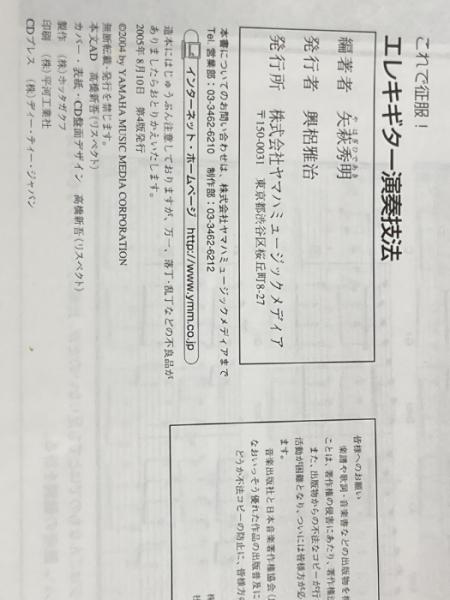 これで征服！
エレキギター演奏技法
編著者 矢萩秀明
やはぎひであき
発行者 輿梠雅治
発行所 株式会社ヤマハミュージックメディア
〒150-0031 東京都渋谷区桜丘町8-27
本書についてのお問い合わせは、株式会社ヤマハミュージックメディアまで
Tel. 営業部：03-3462-6210 制作部：03-3462-6212
インターネット・ホームページ http://www.ymm.co.jp
造本にはじゅうぶん注意しておりますが、万一、落丁・乱丁などの不良品が
ありましたらおとりかえいたします。
2005年8月10日 第4版発行
©2004 by YAMAHA MUSIC MEDIA CORPORATION
無断転載・発行を禁じます。
本文AD 高橋新吾(リスペクト)
カバー・表紙・CD盤面デザイン 高橋新吾(リスペクト)
製作 (株)ホッタガクフ
印刷 (株)平河工業社
CDプレス (株)ディー・ティー・ジャパン
皆様へのお願い
楽譜や歌詞・音楽書などの出版物を権
ことは、著作権の侵害にあたり、著作権法
また、出版物からの不法なコピーが行
活動が困難となり、ついには皆様方が必
ます。
音楽出版社と日本音楽著作権協会(J
なおいっそう優れた作品の出版普及に
どうか不法コピーの防止に、皆様方の
株